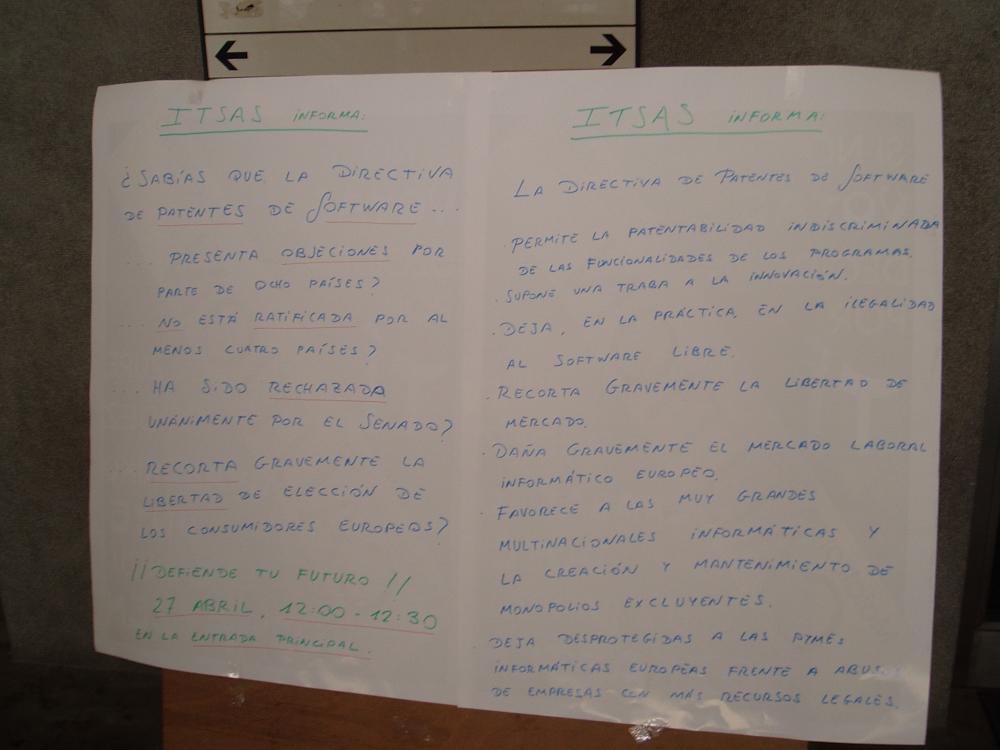 ITSAS INFORMA:
¿SABÍAS QUE LA DIRECTIVA
DE PATENTES DE SOFTWARE...
... PRESENTA OBJECIONES POR
PARTE DE OCHO PAÍSES?
... NO ESTÁ RATIFICADA POR AL
MENOS CUATRO PAÍSES?
... HA SIDO RECHAZADA
UNÁNIMENTE POR EL SENADO?
... RECORTA GRAVEMENTE LA
LIBERTAD DE ELECCIÓN DE
LOS CONSUMIDORES EUROPEOS?
¡¡DEFIENDE TU FUTURO!!
27 ABRIL, 12:00-12:30
EN LA ENTRADA PRINCIPAL.
ITSAS INFORMA:
LA DIRECTIVA DE PATENTES DE SOFTWARE
. PERMITE LA PATENTABILIDAD INDISCRIMINADA
DE LAS FUNCIONALIDADES DE LOS PROGRAMAS.
. SUPONE UNA TRABA A LA INNOVACIÓN.
. DEJA, EN LA PRÁCTICA, EN LA ILEGALIDAD
AL SOFTWARE LIBRE.
. RECORTA GRAVEMENTE LA LIBERTAD DE
MERCADO.
. DAÑA GRAVEMENTE EL MERCADO LABORAL
INFORMÁTICO EUROPEO.
. FAVORECE A LAS MUY GRANDES
MULTINACIONALES INFORMÁTICAS Y
LA CREACIÓN Y MANTENIMIENTO DE
MONOPOLIOS EXCLUYENTES.
. DEJA DESPROTEGIDAS A LAS PYMES
INFORMÁTICAS EUROPEAS FRENTE A ABUSOS
DE EMPRESAS CON MÁS RECURSOS LEGALES.